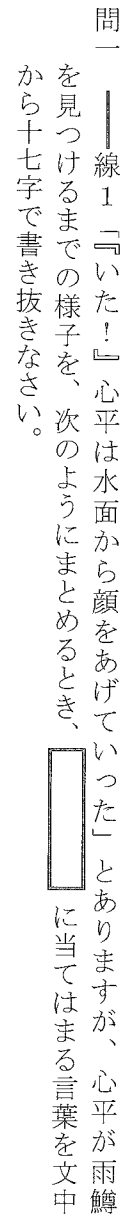 問一　━━線１「『いた！』心平は水面から顔をあげていった」とありますが、心平が雨鱒
を見つけるまでの様子を、次のようにまとめるとき、　　　に当てはまる言葉を文中
から十七字で書き抜きなさい。